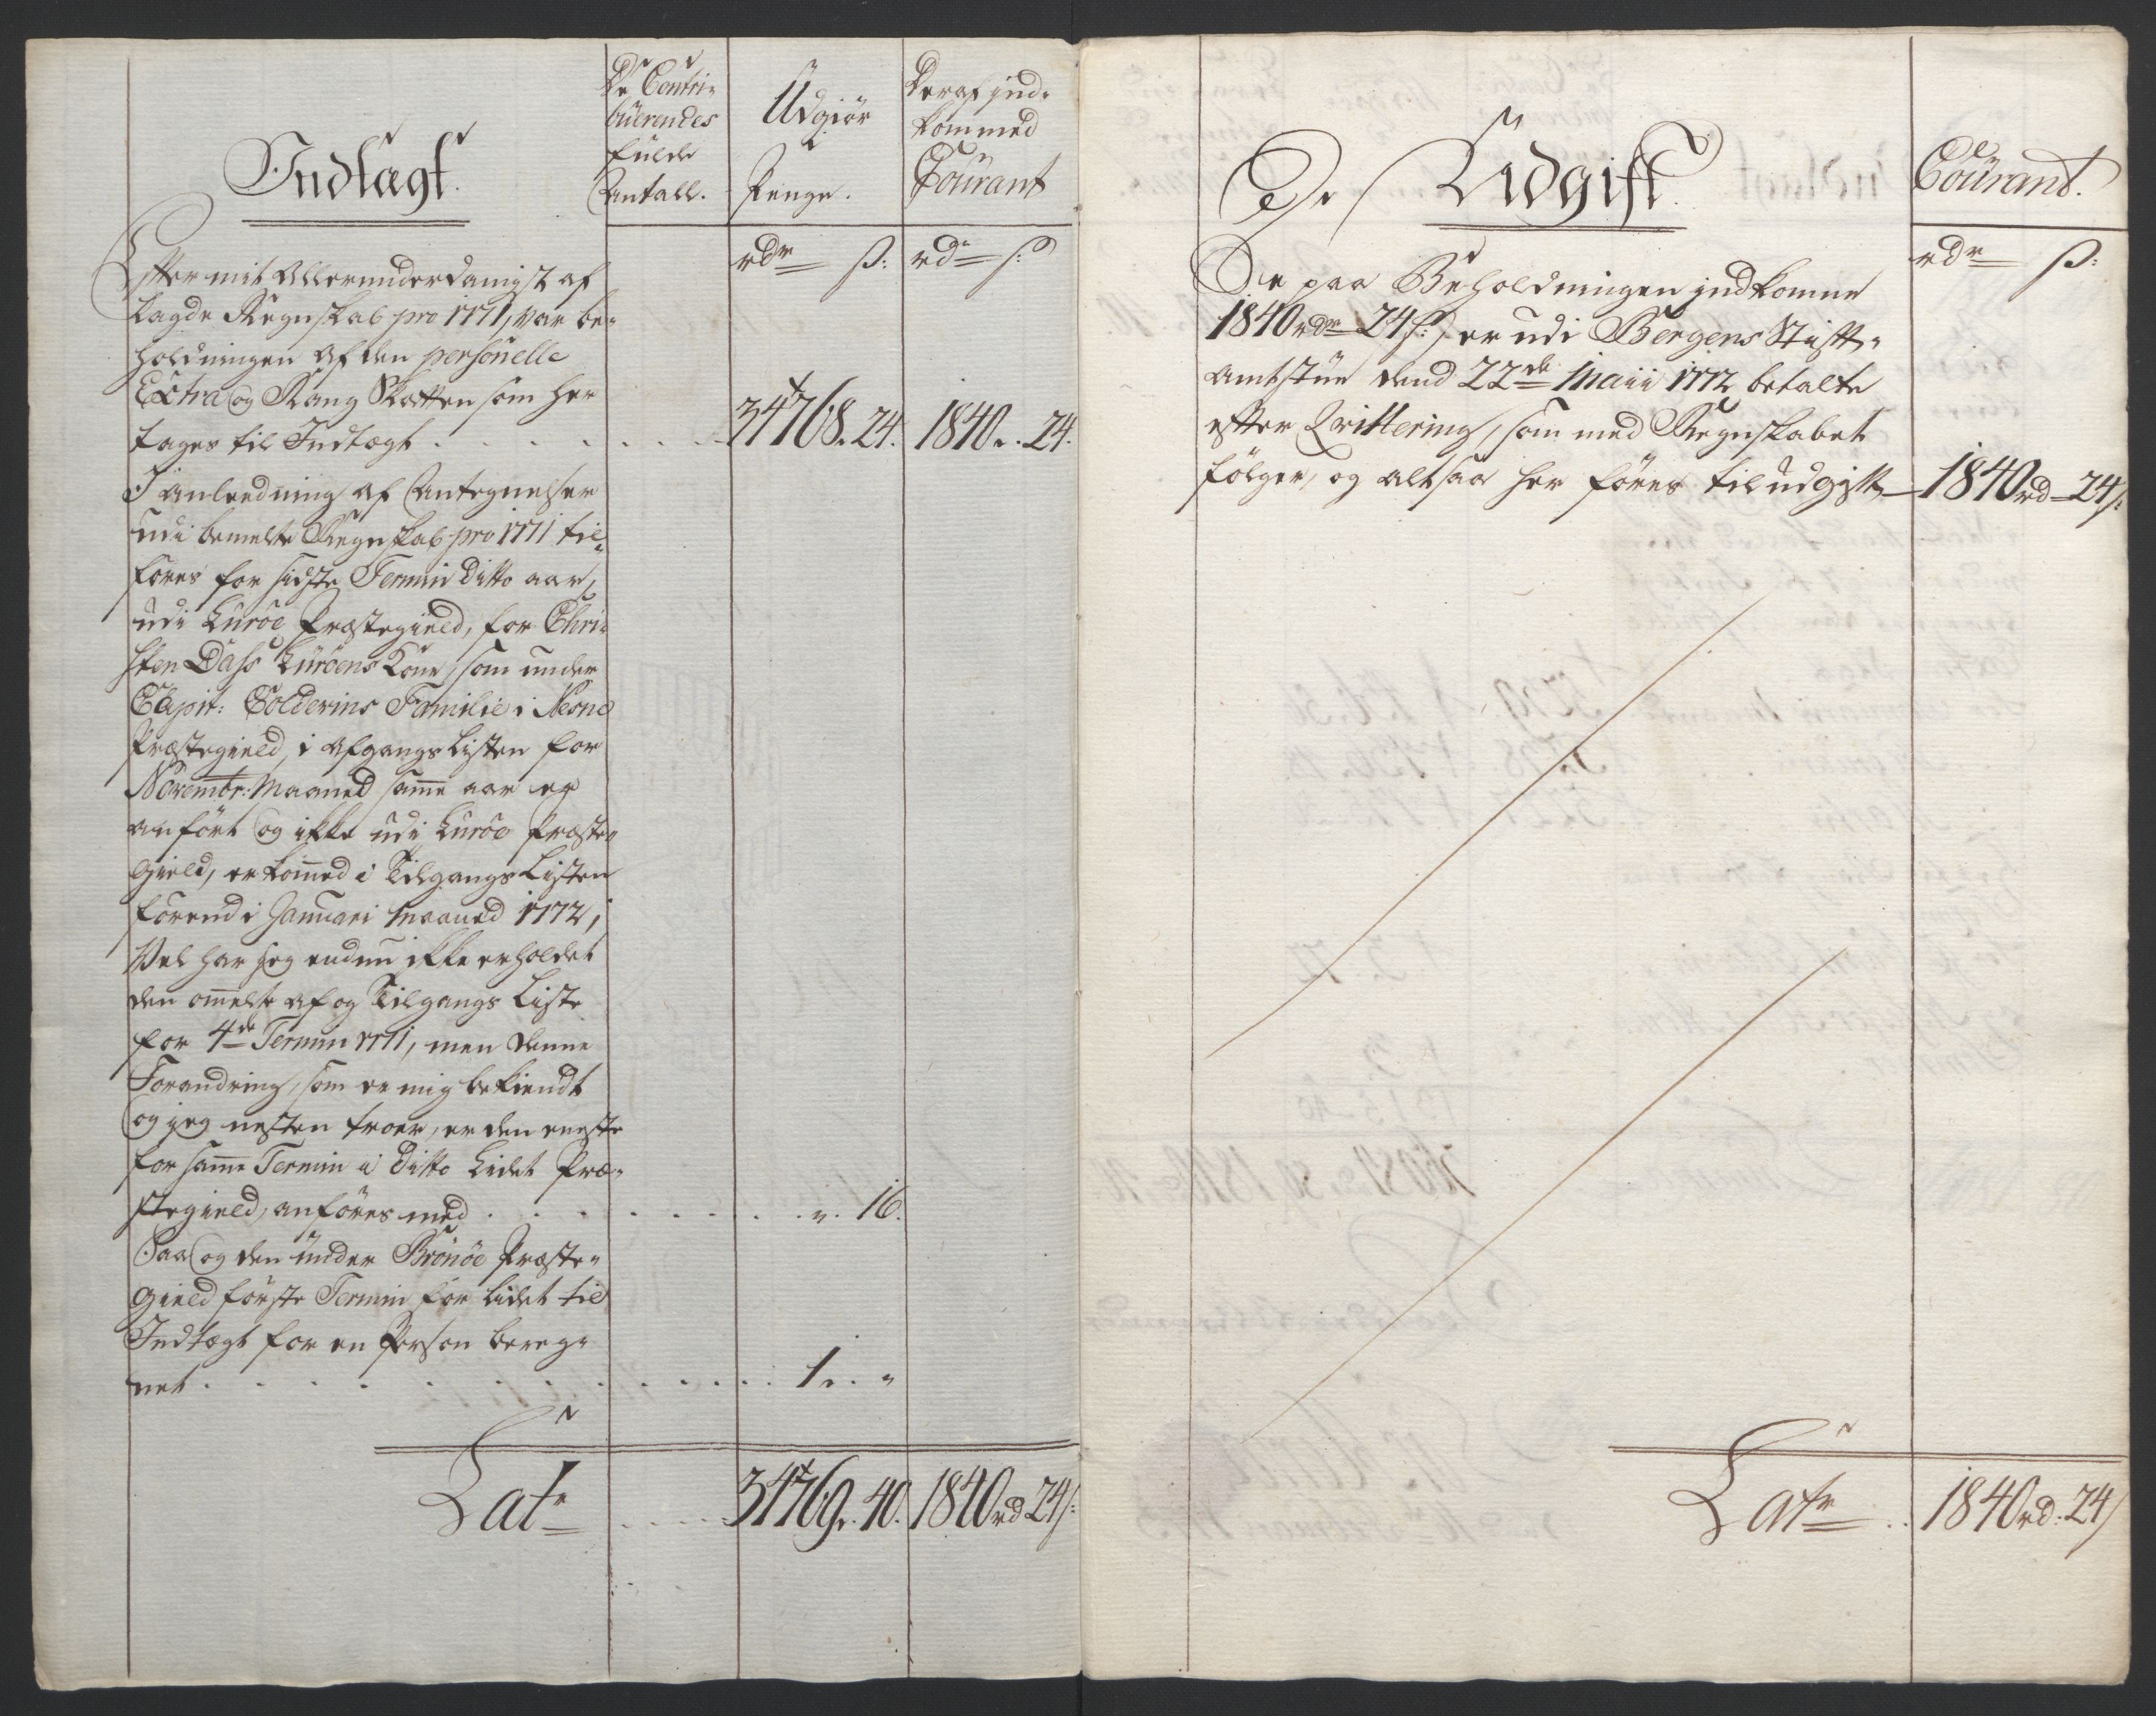 Indtægt.
De Contri-
buerendes
fulde
Antall.
Udgiør
Penge.
Deraf ind-
kommed
Courant
rdr ß:
rd ß:
Efter mit Allerunderdanigst af
lagde Regnskab pro 1771, var be-
holdningen af den personelle
Extra og Rang Skatten som her
tages til Indtægt . . . . . . . 34768. 24. 1840. 24.
I anleedning af Antegnelser
udi bemelte Regnskab pro 1771 til-
føres for sidste Termin ditto aar,
udi Lurøe Præstegield, for Chri-
sten Dass Lurøens Kone, som under
Capit: Colderins Familie i Nesne
Præstegield, i afgangs Listen for
Novembr: Maaned samme aar er
anført og ikke udi Lurøe Præste-
gield, er kommed i Tilgangs Listen
førend i Januari Maaned 1772,
Vel har jeg endnu ikke erholdet
den ommelte af og Tilgangs Liste
for 4de Termin 1771, men denne
Forandring, som er mig bekiendt
og jeg nesten troer, er den eneste
for samme Termin i ditto Lidet Præ-
stegield, anføres med . . . . . . . ". 16.
Saa og den under Brønøe Præste-
gield første Termin for lidet til
Indtægt for en Person bereg-
net . . . . . . . . . . . 1. "
Latr . . . . 34769. 40. 1840 rd 24ß:
De Udgift.
Courant.
rdr ß:
De paa Beholdningen indkomne
1840 rdr 24 ß:, er udi Bergens Stift-
amtstue dend 22de Maii 1772 betalte
efter Qvittering, som med Regnskabet
følger, og altsaa her føres til udgift 1840 rd 24ß:
Latr . . 1840 rd: 24ß